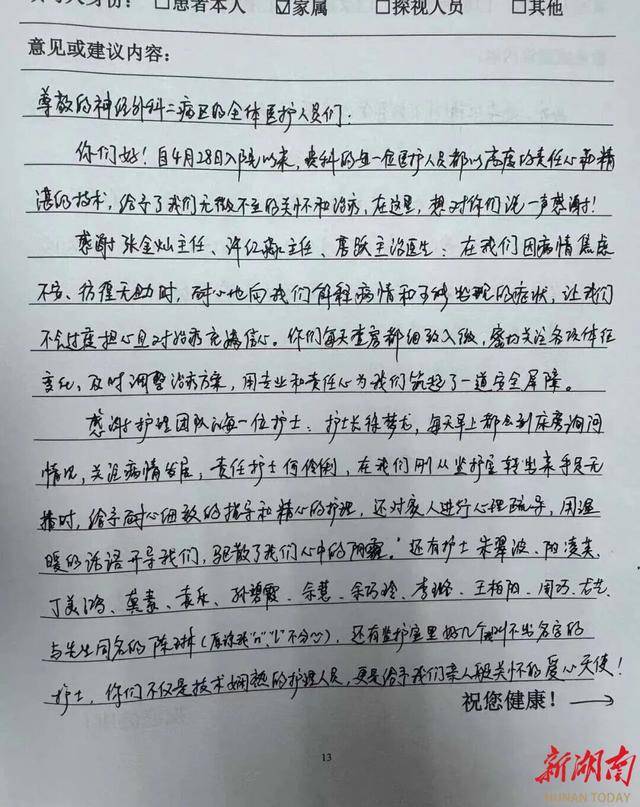 □患者本人 ☑家属 □探视人员 □其他
意见或建议内容:
尊敬的神经外科二病区的全体医护人员们:
你们好!自4月28日入院以来,贵科的每一位医护人员都以高度的责任心和精
湛的技术,给予了我们无微不至的关怀和治疗,在这里,想对你们说一声感谢!
感谢张金灿主任、许红 主任、唐跃主治医生:在我们因病情焦虑
不安、彷徨无助时,耐心地向我们解释病情和可能出现的症状,让我们
不会过度担心且对治疗充满信心。你们每天查房都细致入微,密切关注各项体征
变化,及时调整治疗方案,用专业和责任心为我们筑起了一道安全屏障。
感谢护理团队的每一位护士:护士长徐梦龙,每天早上都会到床旁询问
情况,关注病情发展,责任护士何伶俐,在我们刚从监护室转出来手足无
措时,给予耐心细致的指导和精心的护理,还对家人进行心理疏导,用温
暖的话语开导我们,驱散了我们心中的阴霾。还有护士朱翠波、阳凌芙、
丁美鸿、莫素、袁乐、孙碧霞、余慧、余巧玲、李璐、王柏阳、周巧、
与先生同名的陈 (原谅我"n""l"不分),还有监护室里好几个叫不出名字的
护士,你们不仅是技术娴熟的护理人员,更是给予我们亲人般关怀的爱心天使!
祝您健康!→
13
新湖南
HUNAN TODAY